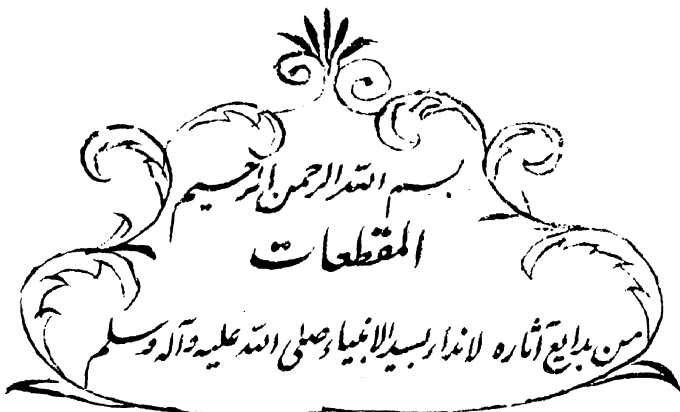 بسم الله الرحمن الرحیم
المقطعات
من بدایع آثاره لسید الانبیاء صلی الله علیه وآله وسلم